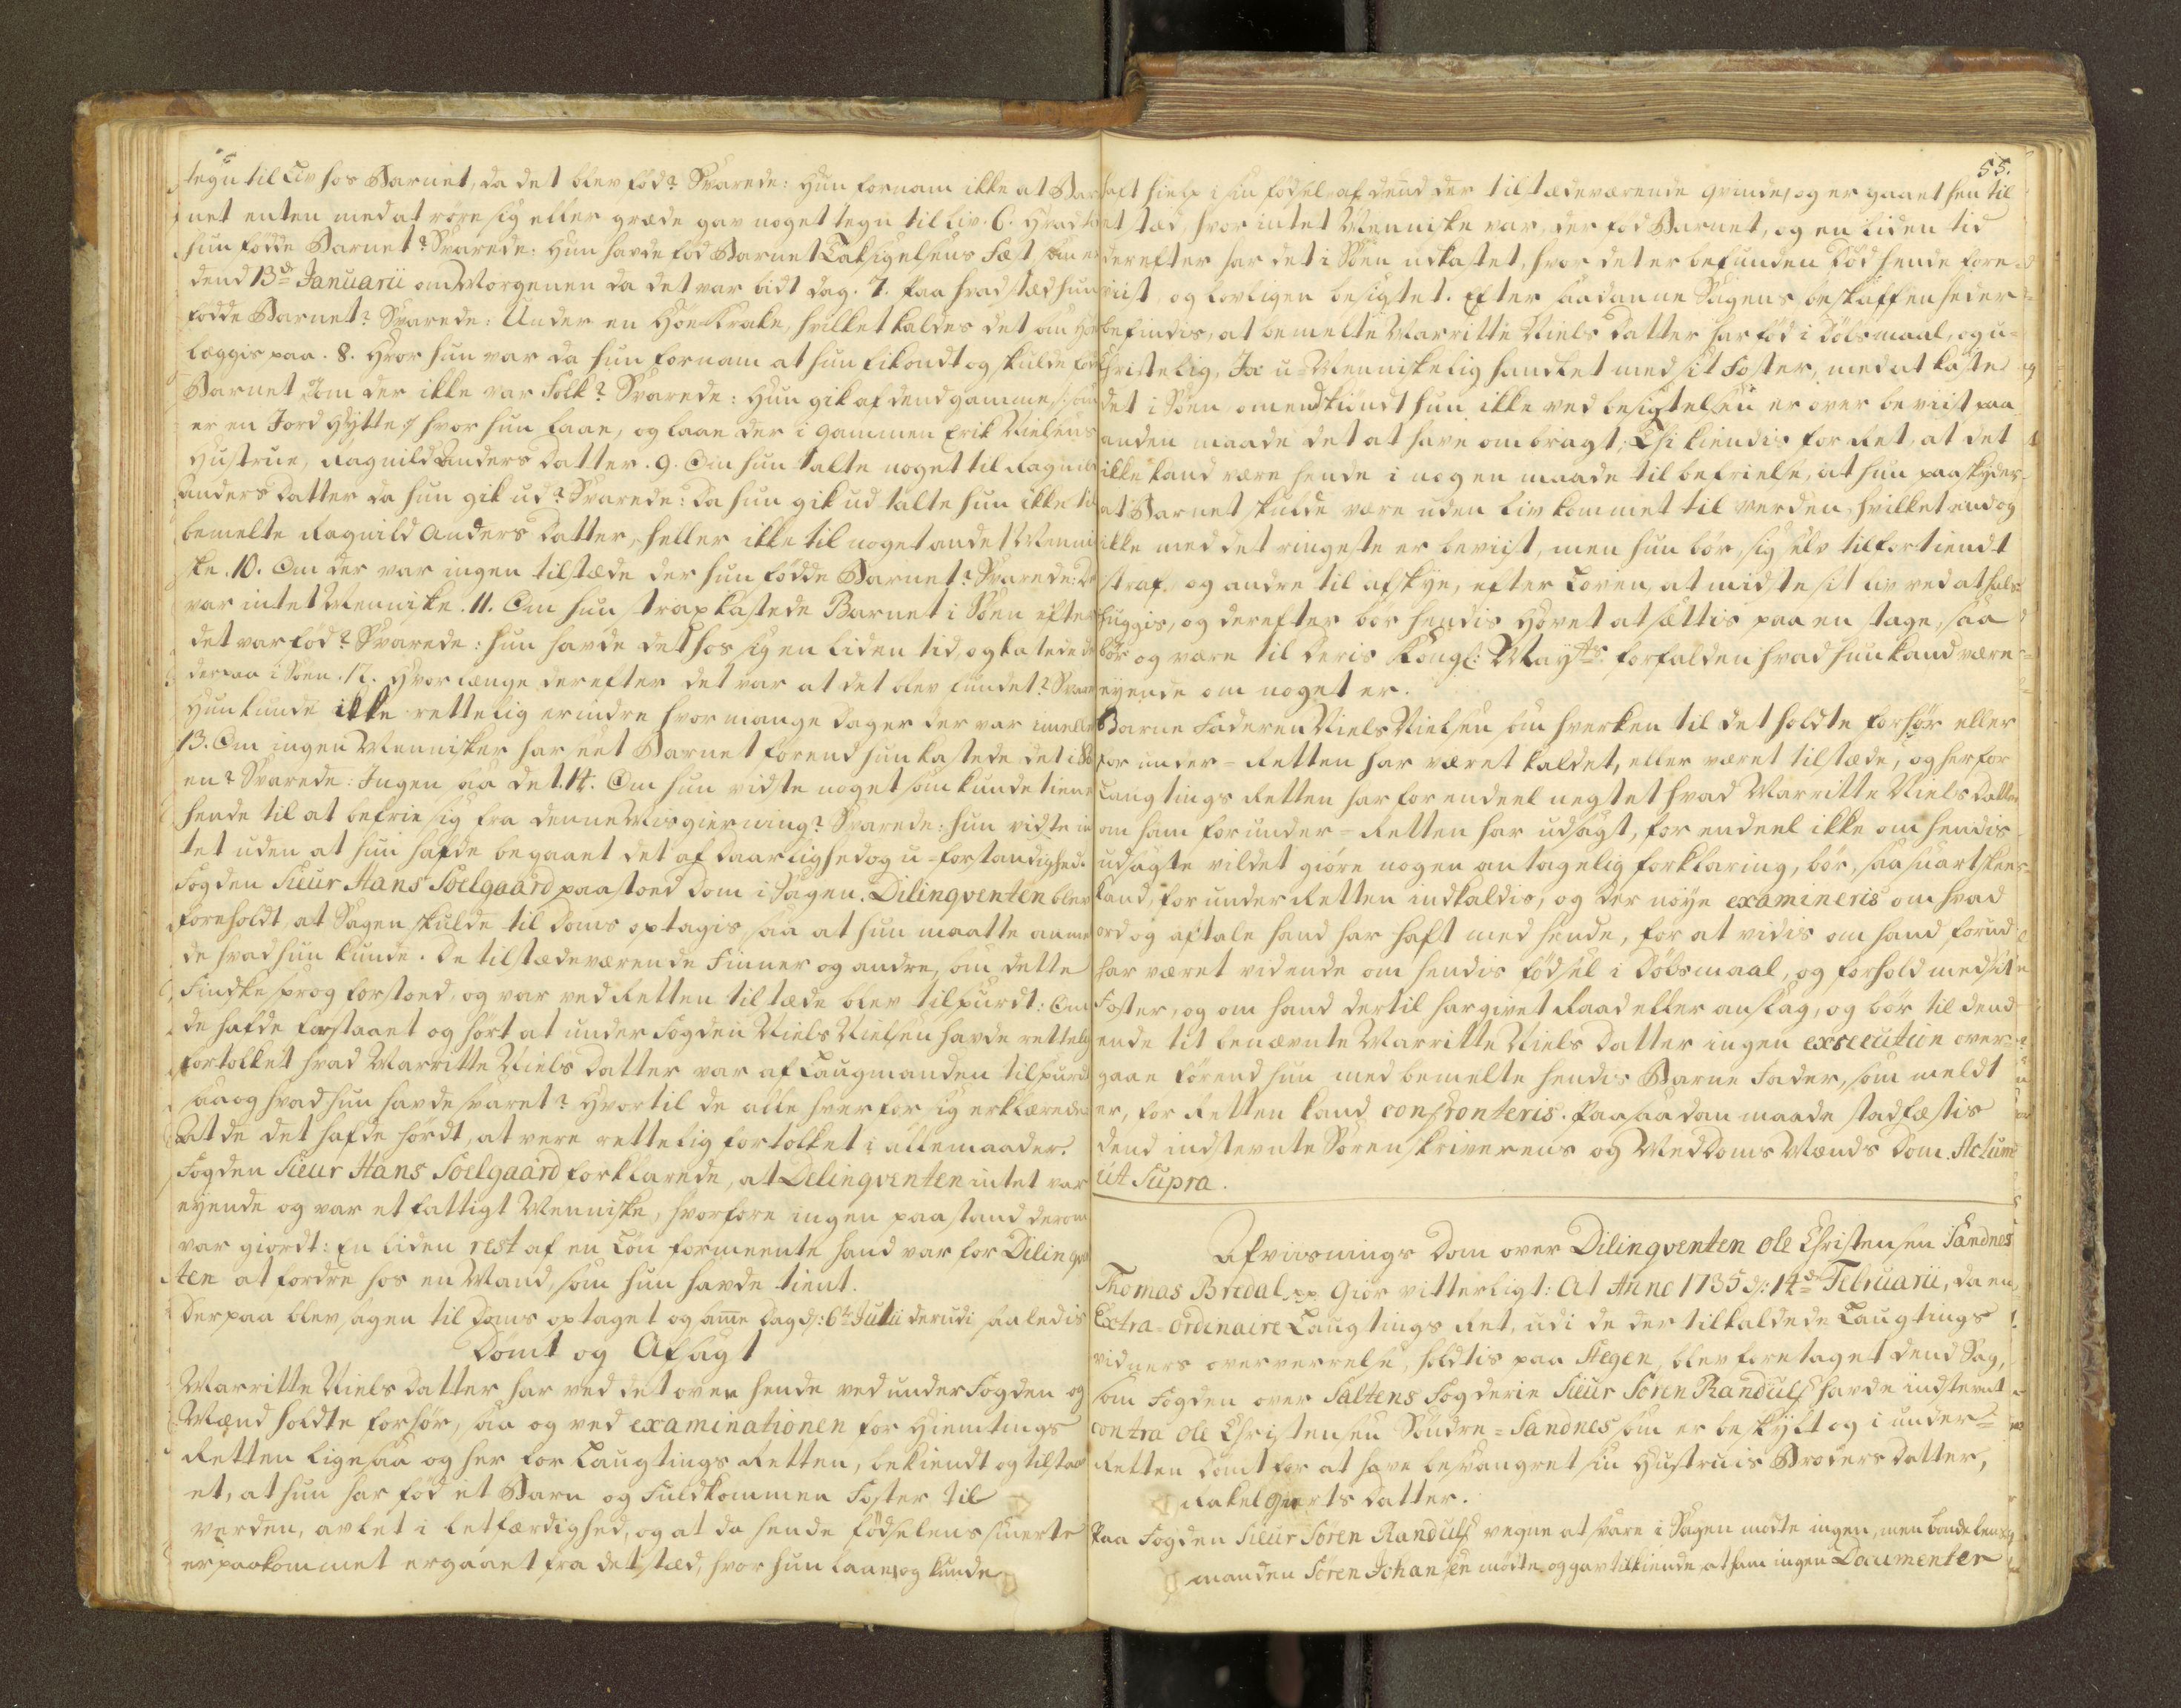 tegn til Liv hos Barnet, da det blev fød? Svarede: Hun fornam ikke at Bar
net enten med at røre sig eller græde gav noget tegn til Liv. 6. Hvad tid
hun fødde Barnet? Svarede: Hun havde fød Barnet Taksigelsens Fæst, som er
dend 13de Januarii om Morgenen da det var lidt Dag. 7. Paa hvad stæd hun
fødde Barnet? Svarede: Under en Høe Krake, hvilket kaldes det am Høe
læggis paa. 8. Hvor hun var da hun fornam at hun fik ondt og skulde føde
Barnet, om der ikke var Folk? Svarede: Hun gik af dend gamme /: som
er en Jord Hytte :/ hvor hun laae, og laae der i gammen Erik Nielsens
Hustrue, Ragnild Anders Datter. 9. Om hun talte noget til Ragnild
Anders Datter da hun gik ud? Svarede: Da hun gik ud talte hun ikke til
bemelte Ragnild Anders Datter, heller ikke til noget andet Menni
ske. 10. Om der var ingen tilstæde der hun fødde Barnet? Svarede: Der
var intet Menniske. 11. Om hun strax kastede Barnet i Søen efter
det var fød? Svarede: hun havde det hos sig en liden tid, og kastede det
derpaa i Søen. 12. Hvor længe derefter det var at det blev fundet? Svare
Hun kunde ikke rettelig erindre hvor mange Dager der var imellem
13. Om ingen Mennisker har seet Barnet forend hun kastede det i Sø
en? Svarede: Ingen saa det. 14. Om hun vidste noget som kunde tiene
hende til at befrie sig fra denne Misgierning? Svarede: hun vidste in
tet uden at hun hafde begaaet det af Daarlighed og u-forstandighed.
Fogden Sieur Hans Soelgaard paastoed Dom i Sagen. Dilinqventen blev
foreholdt, at Sagen skulde til Doms optagis, saa at hun maatte anme
de hvad hun kunde. De tilstædeværende Finner og andre, som dette
Findske sprog forstoed, og var ved Retten tilstæde blev tilspurdt: Om
de hafde forstaaet og hørt at under Fogden Niels Nielsen havde rettelig
fortolket hvad Marritte Niels Datter var af Laugmanden tilspurdt
saa og hvad hun havde svaret? Hvortil de alle hver for sig erklærede:
At de det hafde hørdt, at vere rettelig fortolket i alle maader.
Fogden Sieur Hans Soelgaard forklarede, at Delinqventen intet var
eyende og var et fattigt Menniske, hvorfore ingen paastand derom
var giordt: En liden rest af en Løn formeente hand var for Dilinqven
ten at fordre hos en Mand, som hun havde tient.
Derpaa blev sagen til Doms optaget og same Dag d: 6te Julii derudi saaledis
Dømt og Afsagt
Marritte Niels Datter har ved det over hende ved under Fogden og
Mænd holdte forhør, saa og ved examinationen for Hiemtings
Retten ligesaa og her for Laugtings Retten, bekiendt og tilstaa
et, at hun har fød et Barn og Fuldkommen Foster til
verden, avlet i letfærdighed, og at da hende fødselens smerte
er paakommet er gaaet fra det stæd, hvor hun laae, og kunde
55.
haft hielp i sin fødsel af dend der tilstædeværende qvinde, og er gaaet hen til
et stæd, hvor intet Menniske var, der fød Barnet, og en liden tid
derefter har det i Søen udkastet, hvor det er befunden Død hende fore
viist, og lovligen besigtet. Efter saadanne Sagens beskaffenheder
befindis, at bemelte Marritte Niels Datter har fød i Dølsmaal, og u-
Christelig, Ja u-Menniskelig handlet med sit Foster, med at kaste
det i Søen, omendskiøndt hun ikke ved besigtelsen er over beviist paa
anden maade det at have ombragt, Thi kiendis for Ret, at det
ikke kand være hende i nogen maade til befrielse, at hun paaskyder
at Barnet skulde være uden Liv kommet til verden, hvilket endog
ikke med det ringeste er beviist, men hun bør, sig selv til fortiendt
straf, og andre til afskye, efter Loven, at miste sit Liv ved at hals-
huggis, og derefter bør hendis Hovet at sættis paa en stage, saa
bør og være til Deris Kongl: Mayts: forfalden hvad hun kand være
eyende om noget er.
Barne Faderen Niels Nielsen som hverken til det holdte forhør eller
for under-Retten har været kaldet, eller været tilstæde, og her for
Laugtings Retten har for endeel negtet hvad Marritte Niels Datter
om ham for under-Retten har udsagt, for endeel ikke om hendis
udsagte vildet giøre nogen antagelig forklaring, bør, saa snart skee
kand, for under Retten indkaldis, og der nøye examineris om hvad
ord og aftale hand har haft med hende, for at vidis om hand forud
har været vidende om hendis fødsel i Dølsmaal, og forhold med sit
Foster, og om hand dertil har givet Raad eller anslag, og bør til dend
ende tit benævnte Marritte Niels Datter ingen exsecution over
gaae førend hun med bemelte hendis Barne Fader, som meldt
er, for Retten kand confronteris. Paa saadan maade stadfæstis
dend indstevnte Sørenskriverens og Med Doms Mænds Dom. Actum
ut Supra.
Afviisnings Dom over Dilinqventen Ole Christensen Sandnes
Thomas Bredal pp Giør vitterligt: At Anno 1735 d: 14de Februarii, da en
Extra-Ordinaire Laugtings Ret, udi de der tilkaldede Laugtings
vidners oververrelse, holdtis paa Stegen, blev foretaget dend Sag,
som Fogden over Saltens Fogderie Sieur Søren Randulf havde indstevnt
contra Ole Christensen Søndre-Sandnes som er beskylt og i under-
Retten dømt for at have besvangret sin Hustruis Broders Datter,
Rakel Giærts Datter.
Paa Fogden Sieur Søren Randulfs vegne at svare i Sagen mødte ingen, men bonde lens
manden Søren Johansen mødte og gav tilkiende, at ham ingen Documenter